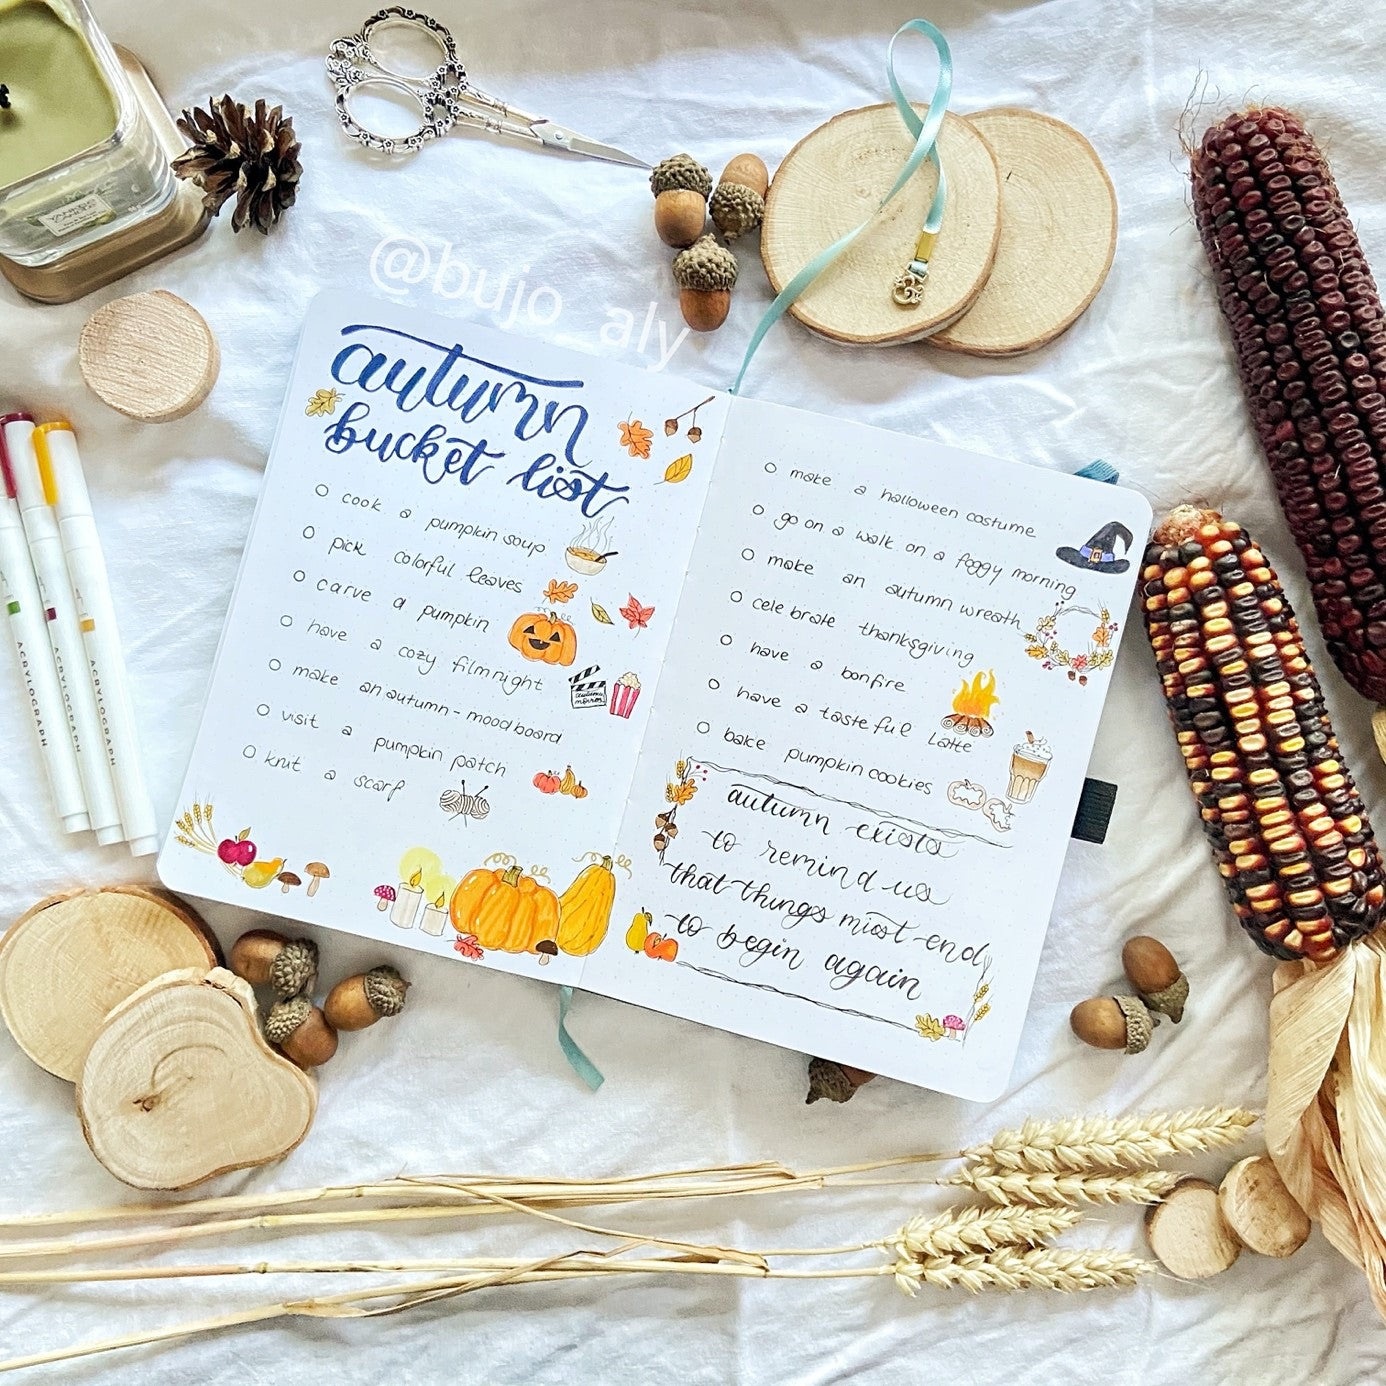 @bujo_aly
autumn
bucket list
cook a pumpkin soup
pick colorful leaves
carve a pumpkin
have a cozy filmnight
make an autumn-moodboard
visit a pumpkin patch
knit a scarf
autumn
movies
make a halloween costume
go on a walk on a foggy morning
make an autumn wreath
celebrate thanksgiving
have a bonfire
have a tasteful Latte
bake pumpkin cookies
autumn exists
to remind us
that things must end,
to begin again
ACRYLOGRAPH
ACRYLOGRAPH
ACRYLOGRAPH